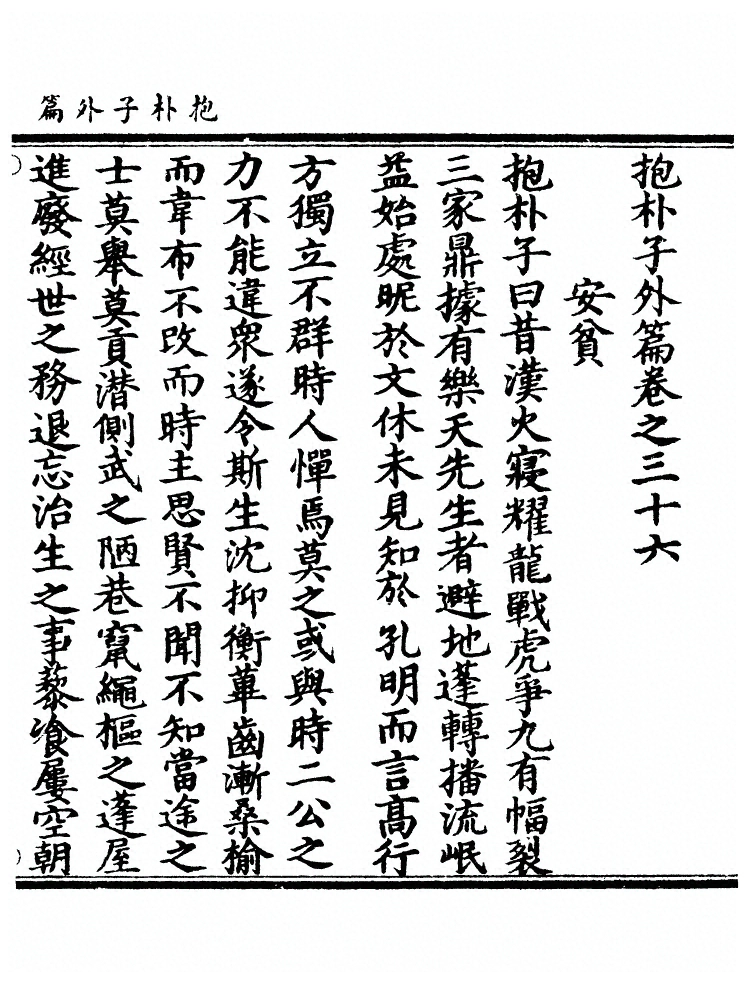 抱朴子外篇
抱朴子外篇卷之三十六
安貧
抱朴子曰昔漢火寢耀龍戰虎爭九有幅裂
三家鼎據有樂天先生者避地蓬轉播流岷
益始處昵於文休未見知於孔明而言高行
方獨立不群時人憚焉莫之或與時二公之
力不能違衆遂令斯生沈抑衡蓽齒漸桑榆
而韋布不改而時主思賢不聞不知當途之
士莫舉莫貢潛側武之陋巷竄繩樞之蓬屋
進廢經世之務退忘治生之事藜飡屢空朝